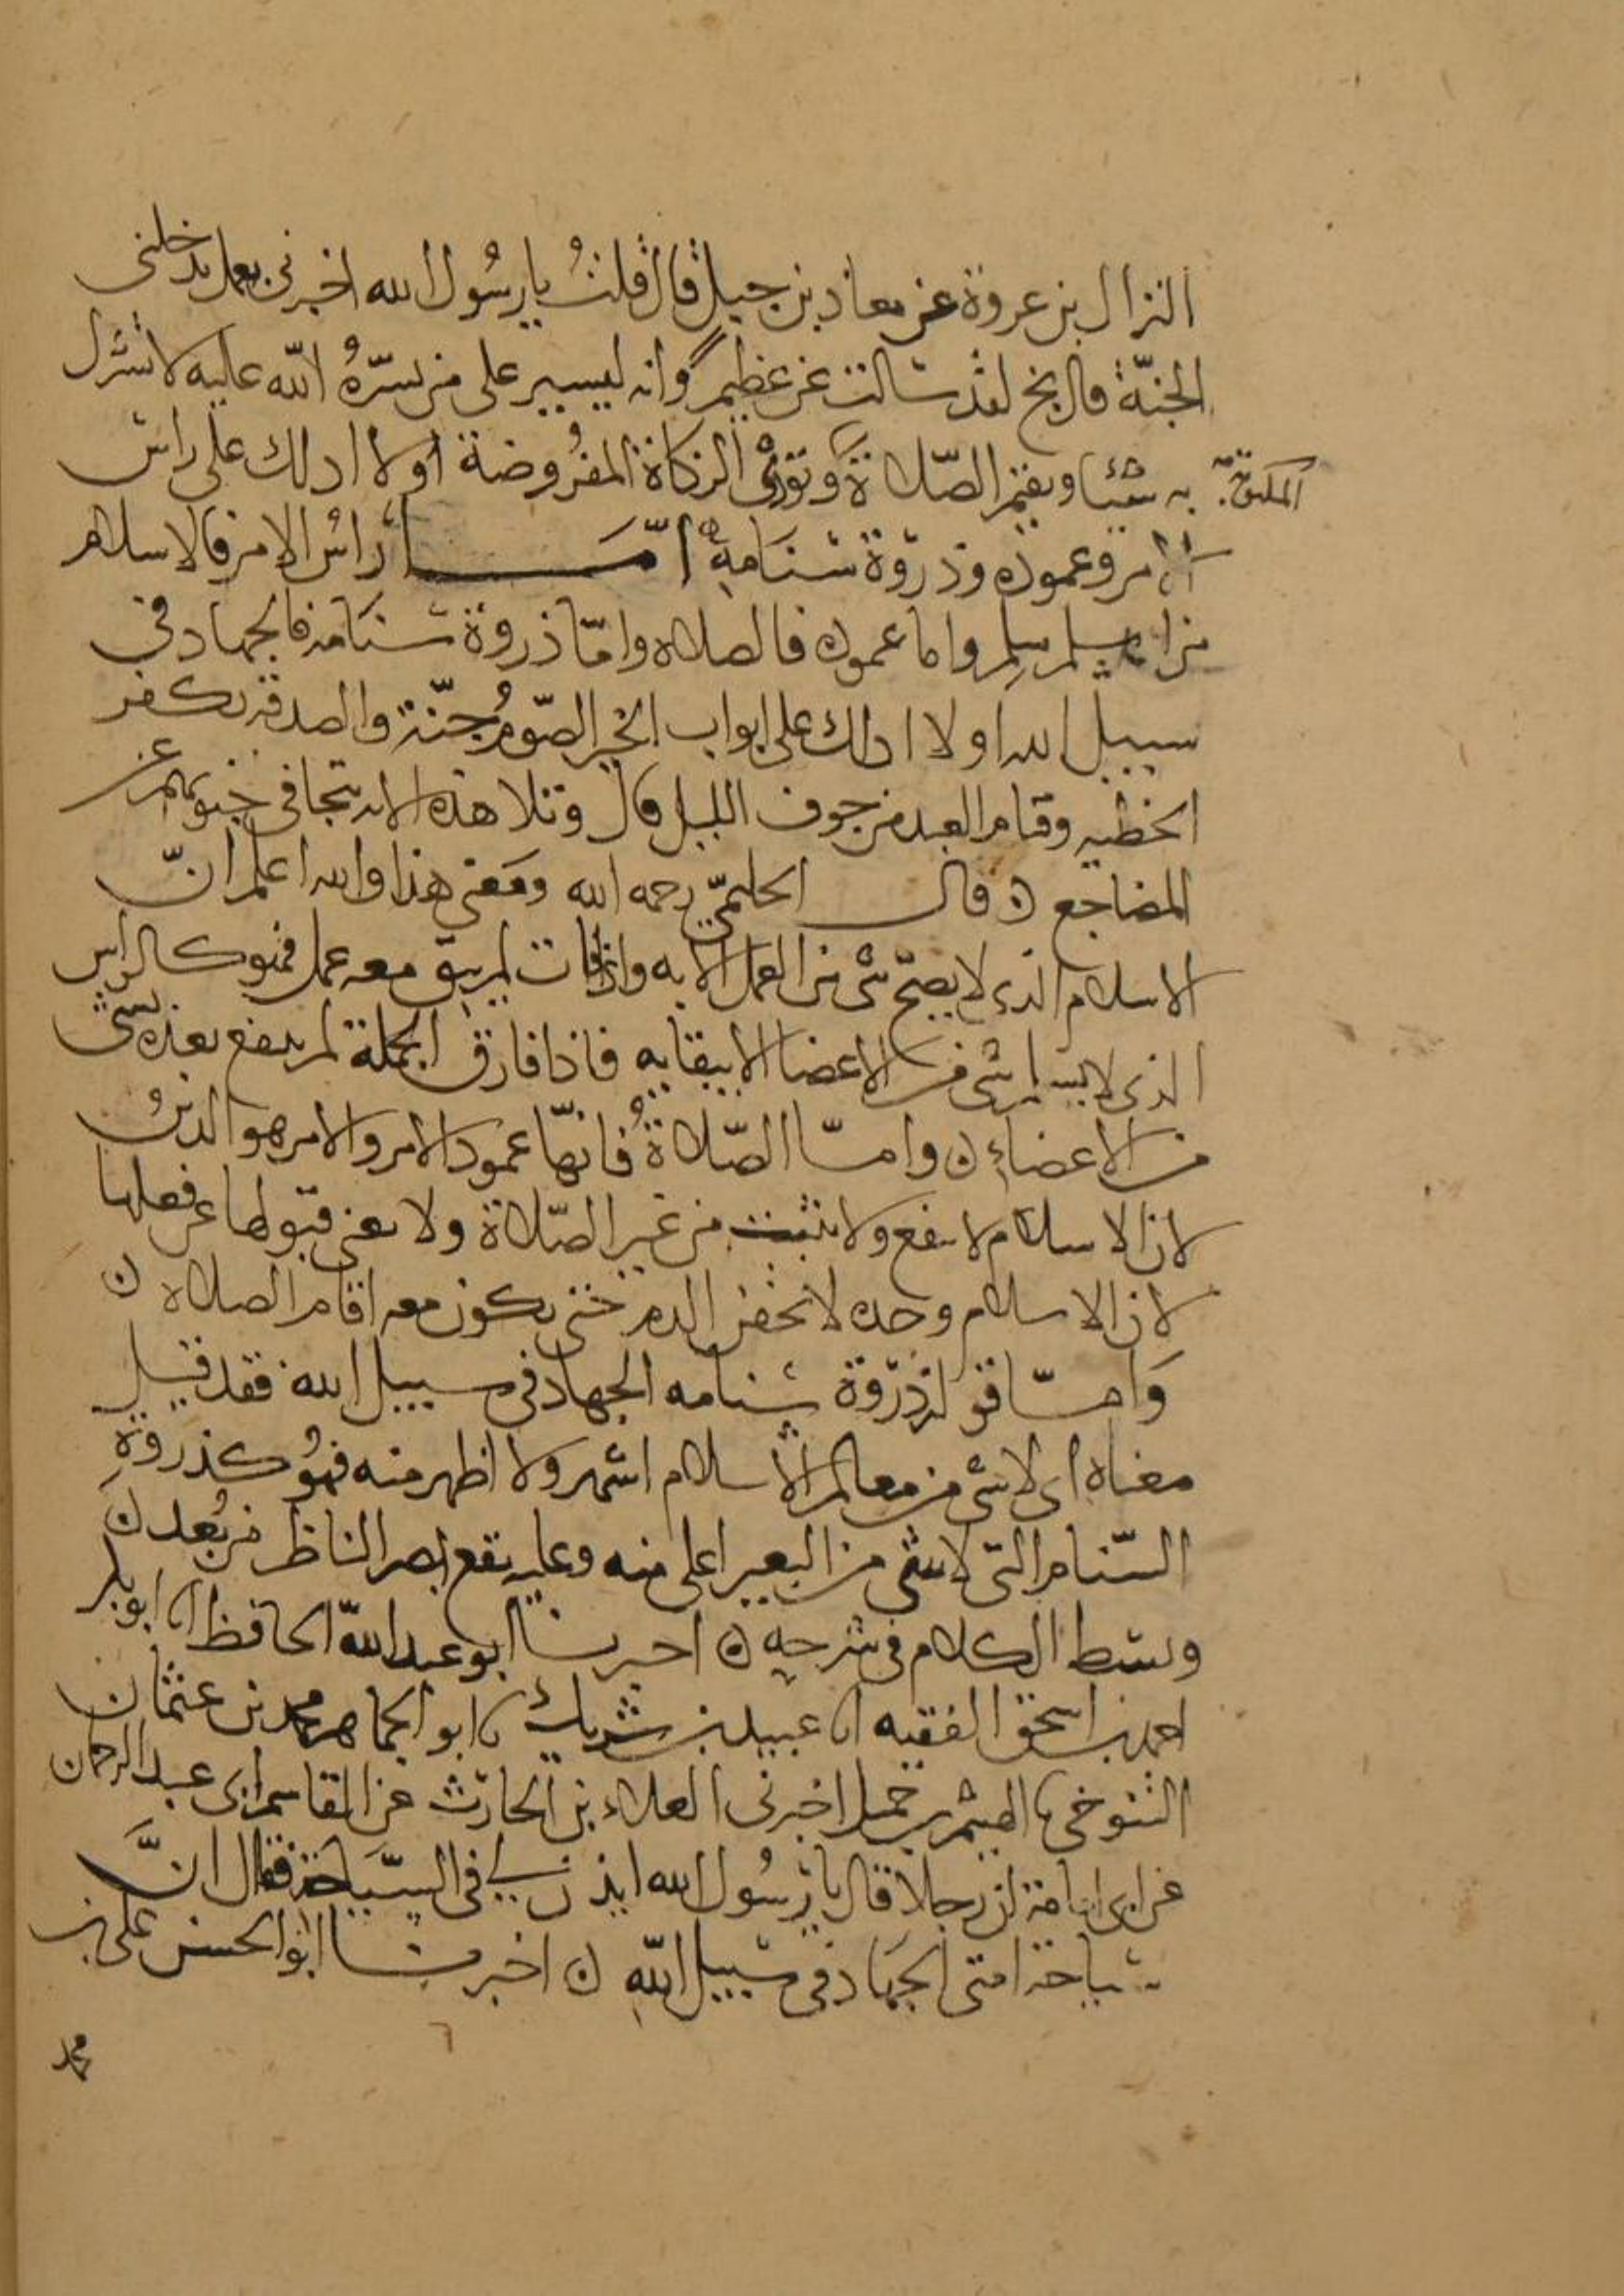 النزال بن عروة عن معاذ بن جبل قال قلتُ يا رسُول الله اخبرنى بعمل يدخلنى
الجنّة قال بخ لقد سالت عن عظيم وانه ليسير على من يسّرهُ الله عليه لا تشرك
به شيئا وتقيم الصّلاة وتؤتى الزكاة المفرُوضة أولا ادلك على راس
المكتوبة
الامر وعموده وذروة سنَامهِ امّا رَاسُ الامر فالاسلام
من اسلم سلِم واما عموده فالصلاه وامّا ذروة سنَامه فالجهاد فى
سبيل الله اولا ادلك على ابواب الخير الصّومُ جنّة والصدقه تكفر
الخطيه وقيام العبد من جوف الليل قال وتلا هذه الايه تتجافى جنوبهم عن
المضاجع ن قال الحليمّى رحمه الله ومَعنى هذا والله اعلم انّ
الاسلام الذى لا يصحّ شى من العمل الا به واذا فات لم يبق معه عمل فهو كالراس
الذى لا يسلم شى من الاعضا الا ببقايه فاذا فارق الجملة لم ينتفع بعده بشى
من الاعضاءِ ن وامّا الصّلاةُ فانهّا عمود الامر والامر هو الدينُ
لان الاسلام لا ينفع ولا يثبت من غير الصّلاة ولا يغنى قبولها عن فعلها
لان الاسلام وحده لا يحقن الدم حتى يكون معه اقام الصلاه ن
وَامّا قوله ذروة سنامه الجهاد فى سبيل الله فقد قيل
معناه اى لا شى من معالم الاسلام اشهر ولا اظهر منه فهوُ كذروةِ
السّنام التى لا شى من البعير اعلى منه وعليه يقع بصر الناظر من بُعد ن
وبسط الكلام فى شرحه ن اخبرنا ابو عبد الله الحافظ انا ابو بكر
احمد بن اسحق الفقيه انا عبيد بن شريك نا ابو الجماهر محمد بن عثمان
التنوخى نا الهيثم بن حميد اخبرنى العلاء بن الحارث عن القاسم ابى عبد الرحمان
عن ابى امامة ان رجلا قال يا رسُول الله ايذن لى فى السّيَاحَة فقال انَّ
سياحة امتى الجهَاد فى سبيل الله ن اخبرنا ابو الحسن على بن
محمد